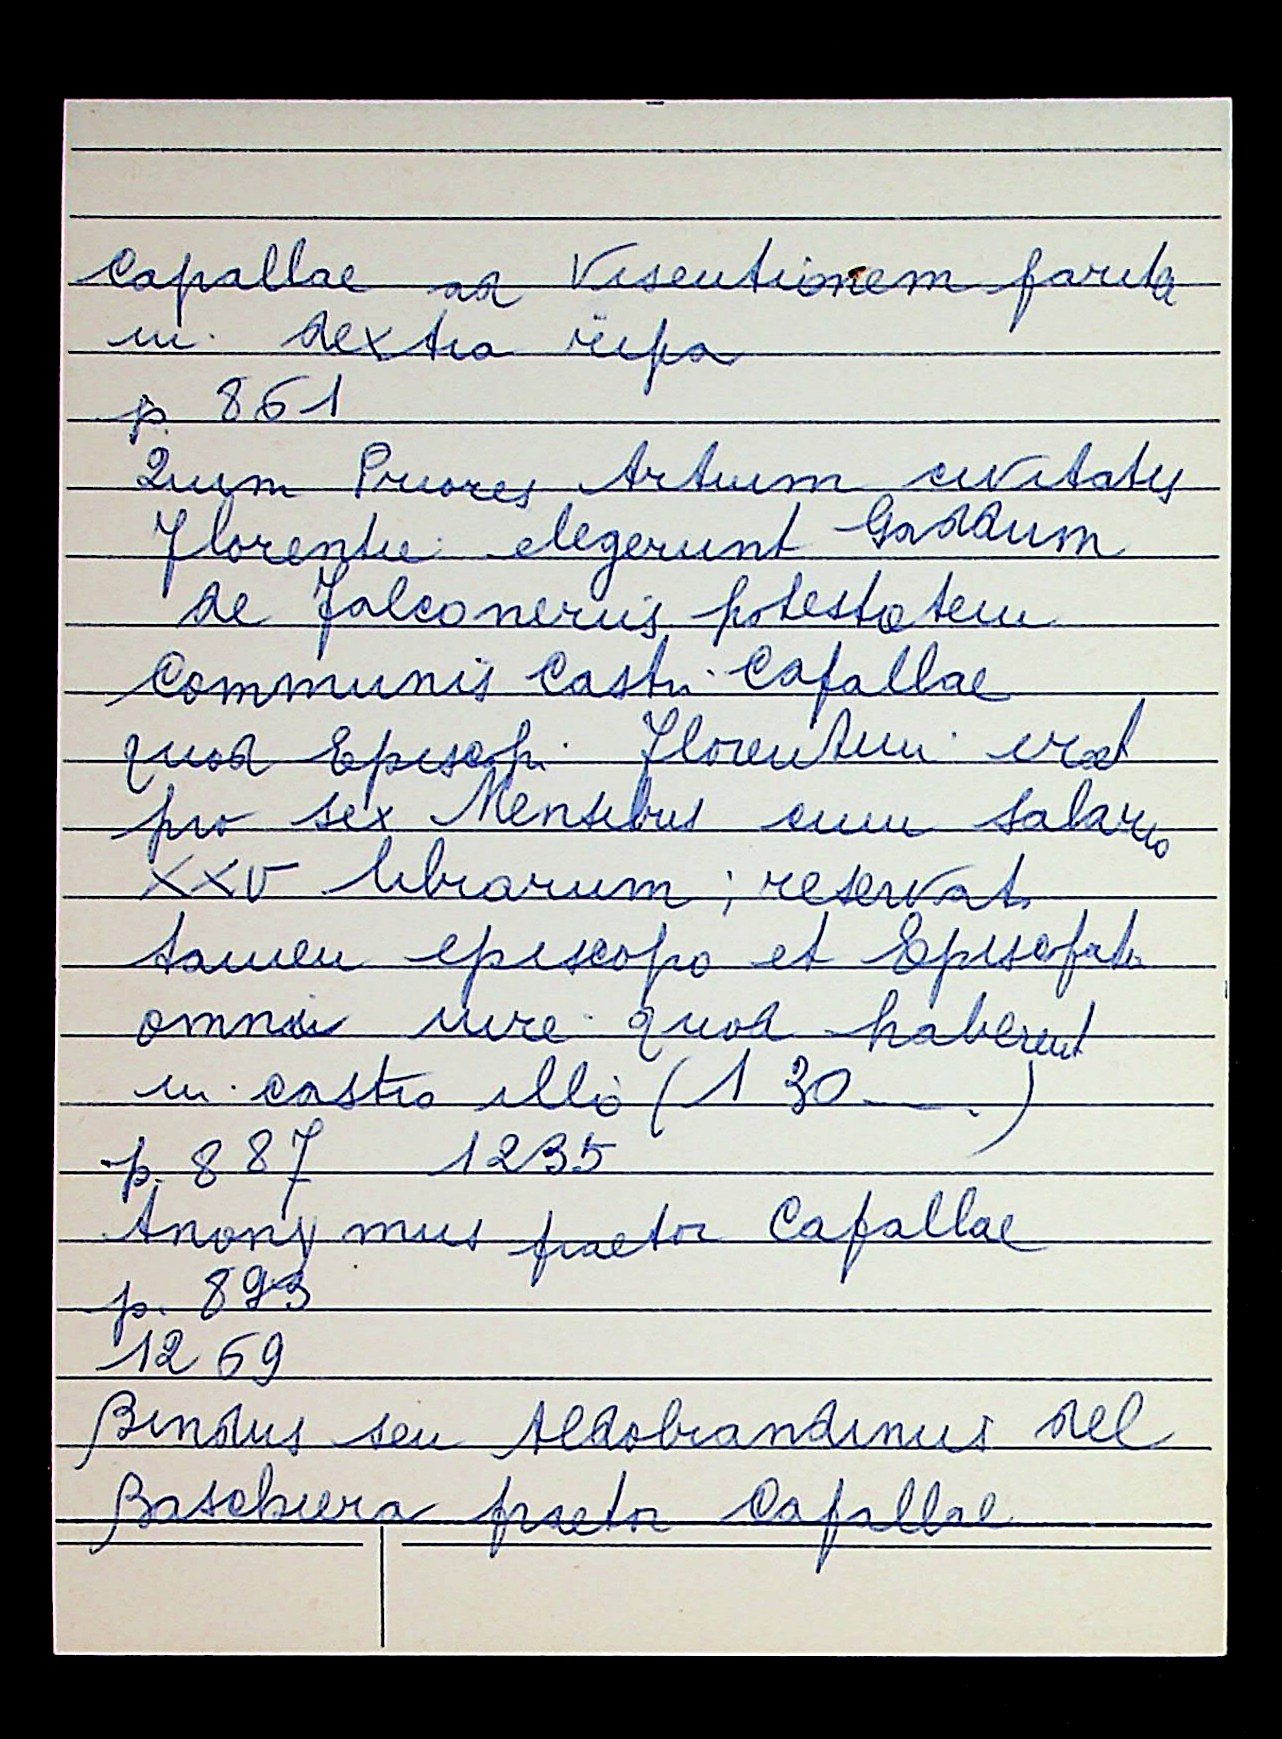 Capallae ad Viseutionem parita
in dextra ripa
p. 861
Quum Priores Artium civitatis
Florentie elegerunt Gaddum
de Falconeriis potestatem
Communis Castri Capallae
quod Episcopi Florentini erat
pro sex Mensibus cum salario
XXV librarum ; reservat.
tamen episcopo et Episcopatu
omni iure quod haberent
in castro illo ( 1 30 . )
p. 887 1235
Anonymus praetor Capallae
p. 893
1269
Bindus seu Aldobrandinus del
Baschiera praetor Capallae